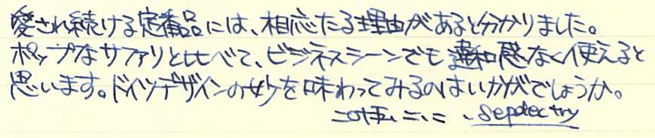 愛され続ける定番品には、相応たる理由があると分かりました。
ポップなサファリと比べて、ビジネスシーンでも違和感なく使えると
思います。ドイツデザインの妙を味わってみるのはいかがでしょうか。